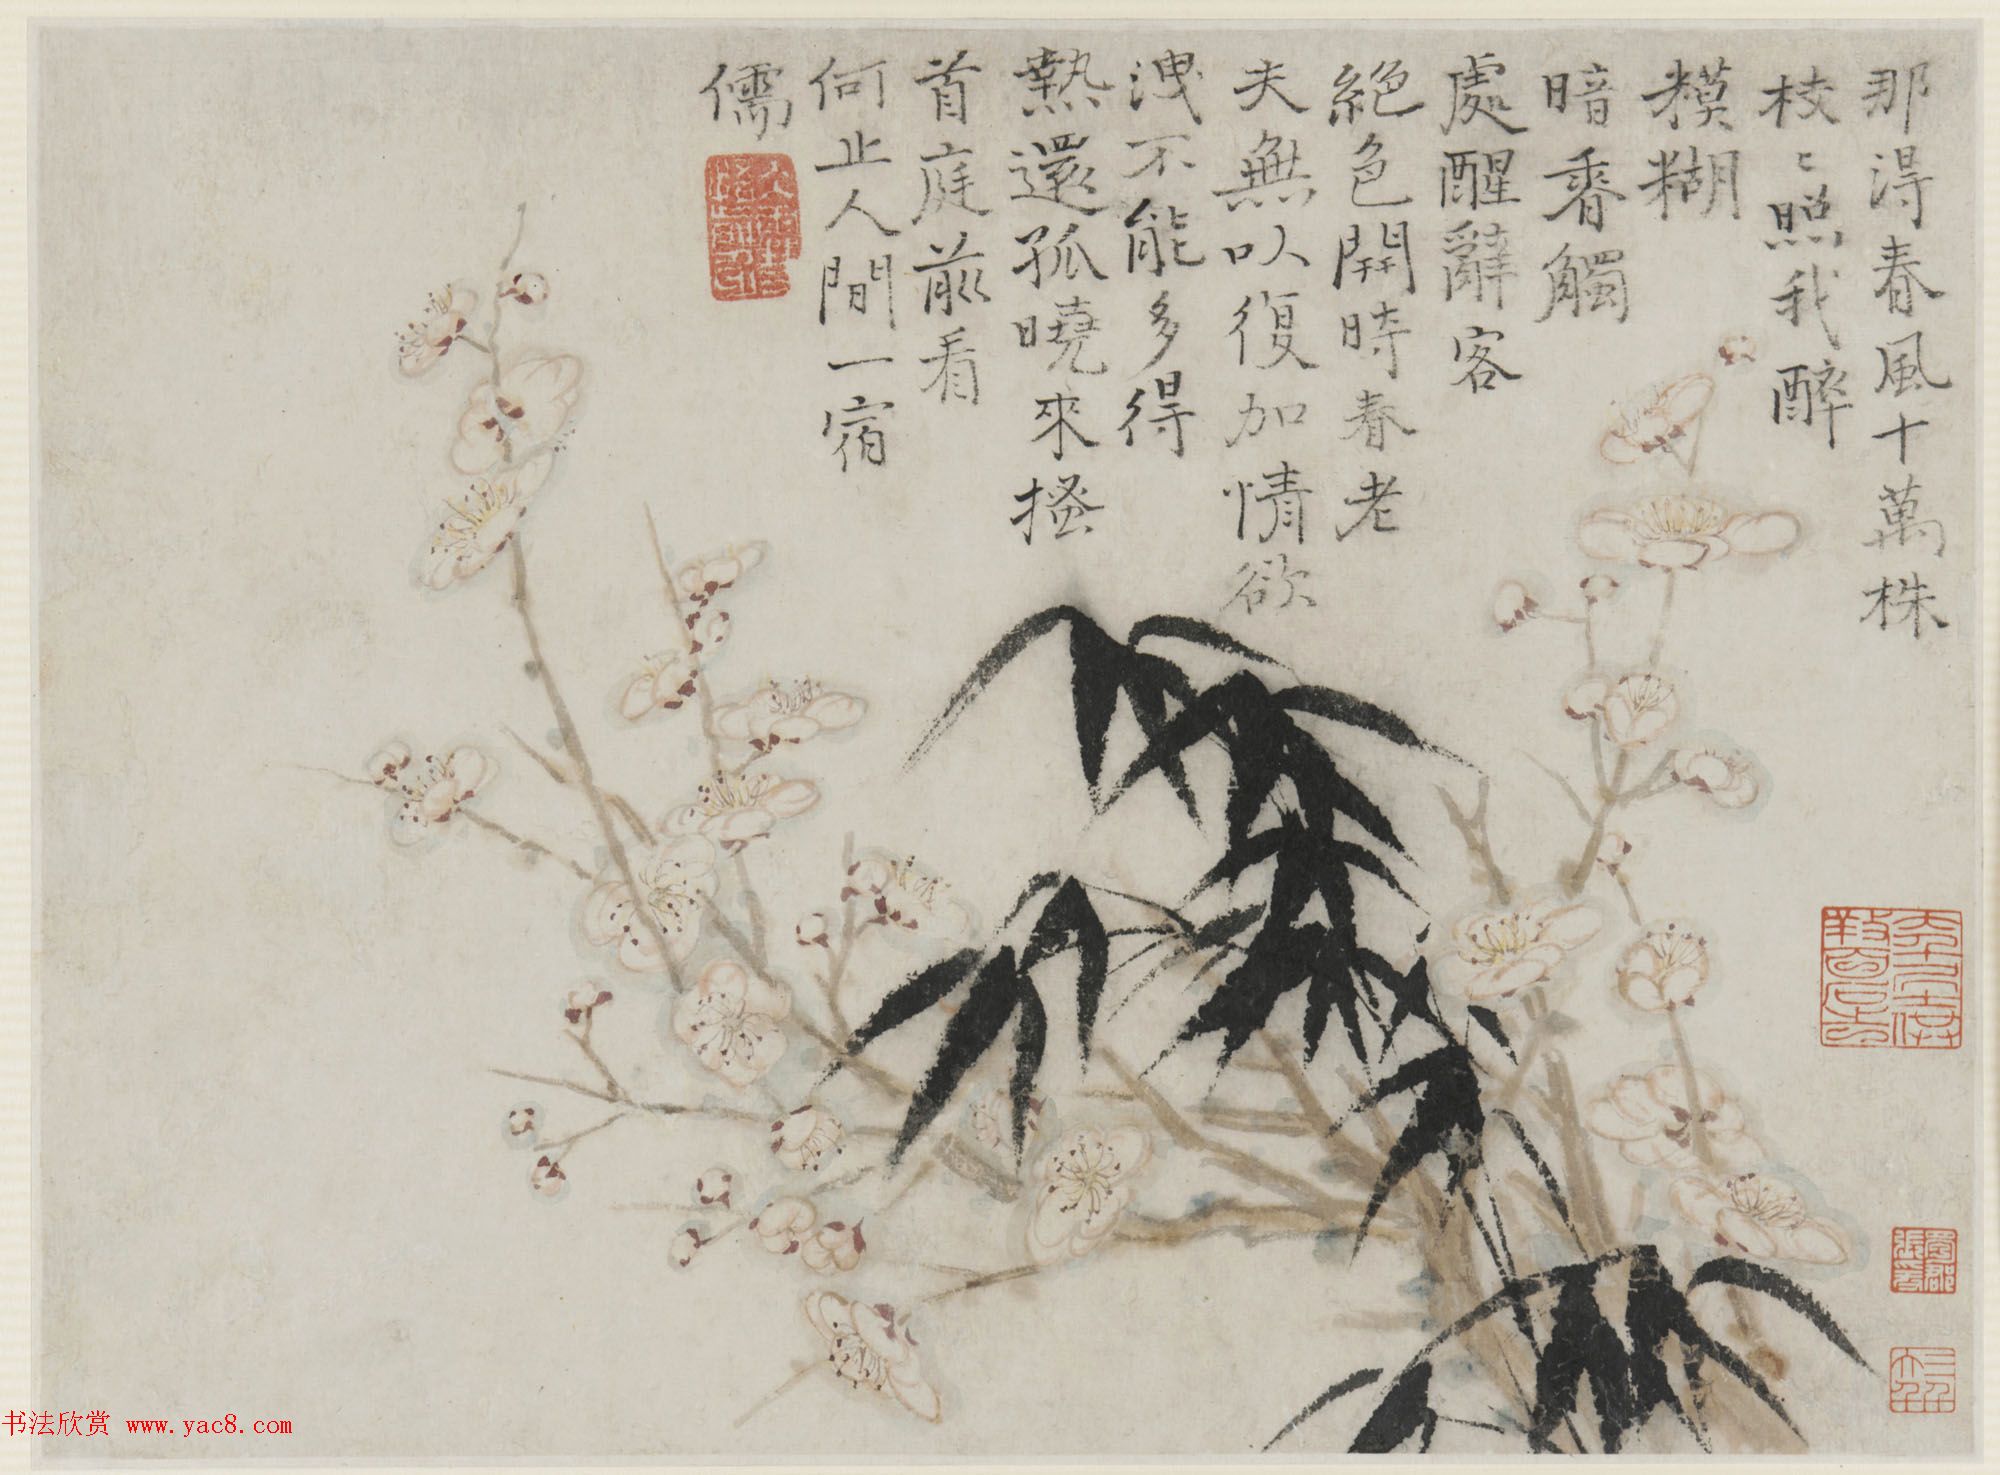 那淂春風十萬株
枝〻照我醉
糢糊
暗香觸
處醒辭客
絕色開時春老
夫無以復加情欲
洩不能多得
熱還孤曉來搔
首庭前看
何止人間一宿
儒
书法欣赏 www.yac8.com